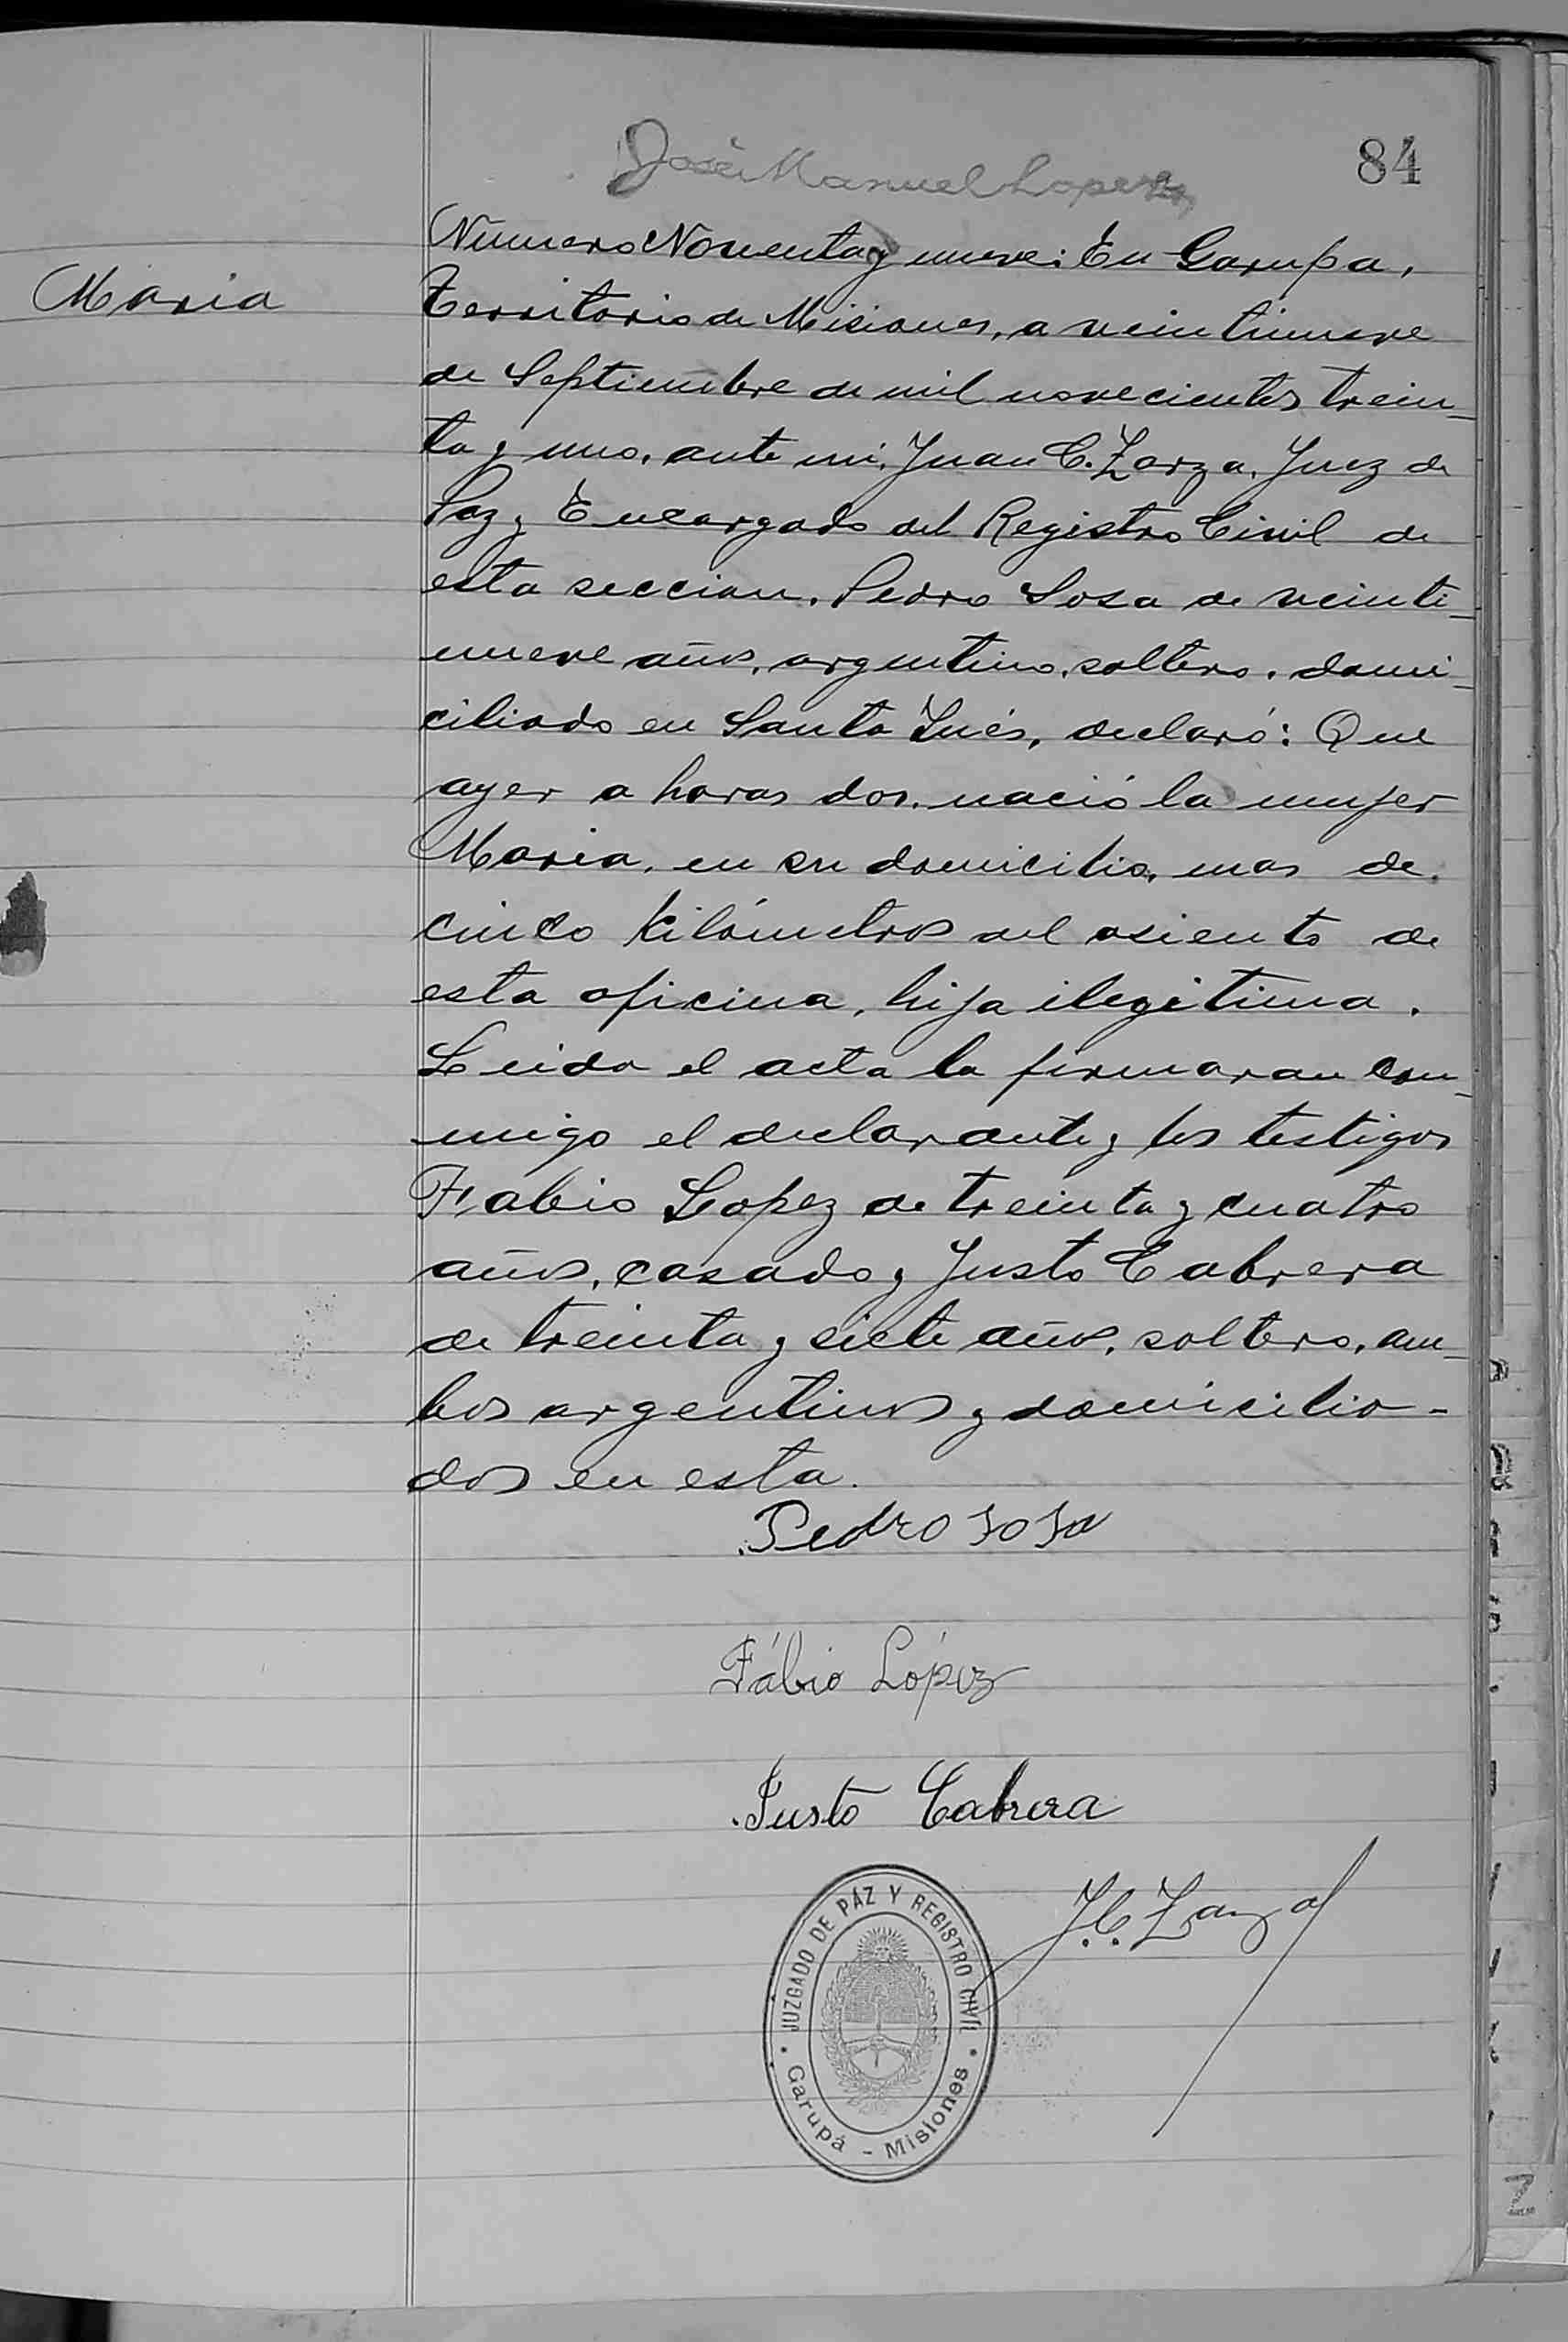 José Manuel Lopez
84
Maria
Número Noventa y nueve: En Garupa,
Territorio de Misiones, a veintinueve
de Septiembre de mil novecientos trein_
ta y uno, ante mi, Juan C. Zarza, Juez de
Paz y Encargado del Registro Civil de
esta seccion, Pedro Sosa de veinti_
nueve años, argentino, soltero, domi_
ciliado en Santa Inés, declaró: Que
ayer a horas dos, nació la mujer
Maria, en su domicilio, mas de
cinco kilómetros del asiento de
esta oficina, hija ilegitima.
Leida el acta la firmaran con_
migo el declarante y los testigos
Fabio Lopez de treinta y cuatro
años, casado y Justo Cabrera
de treinta y siete años, soltero, am_
bos argentinos y domicilia-
dos en esta.
Pedro Sosa
Fábio López
Justo Cabrera
J. C. Zarza
JUZGADO DE PAZ Y REGISTRO CIVIL
Garupá - Misiones